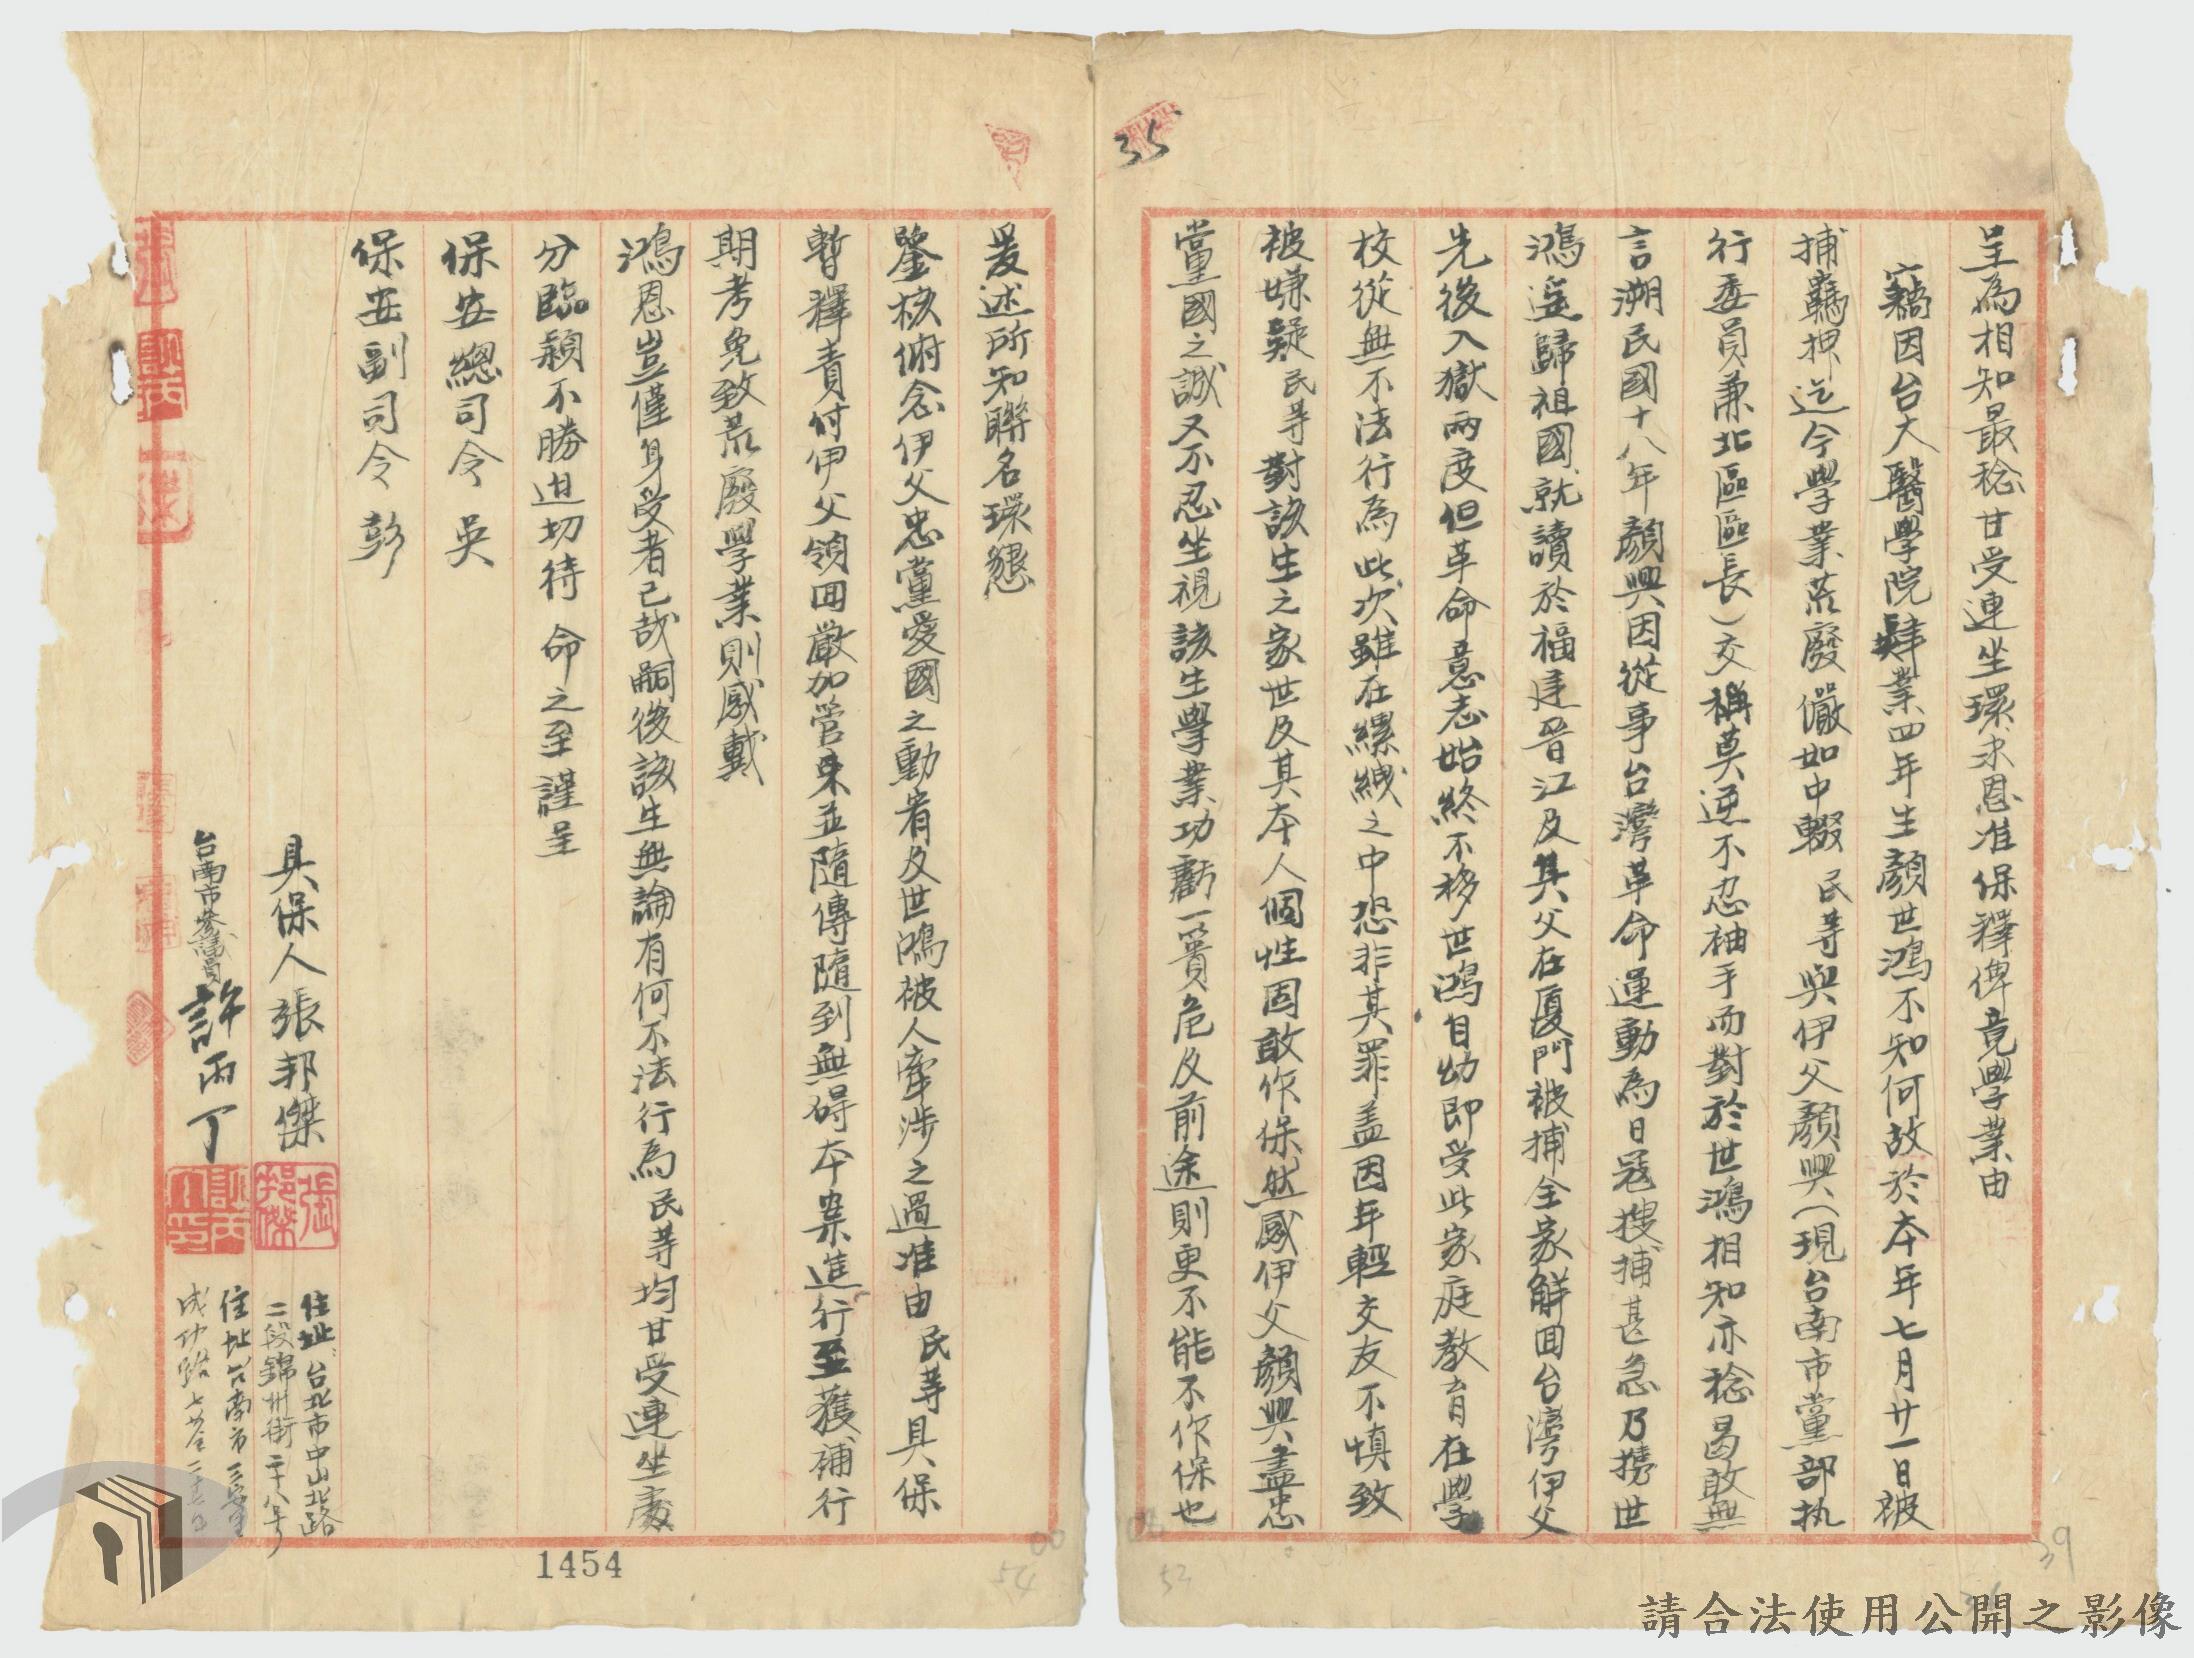 35
呈為相知最稔甘受連坐環求恩准保釋俾竟學業由
竊因台大醫學院肄業四年生顏世鴻不知何故於本年七月廿一日被
捕羈押迄今學業荒廢儼如中輟民等與伊父顏興(現台南市黨部执
行委員兼北區區長)交稱莫逆不忍袖手而對於世鴻相知亦稔曷敢無
言溯民國十八年顏興因從事台灣革命運動為日寇搜捕甚急乃携世
鴻遥歸祖國就讀於福建晉江及其父在廈門被捕全家解回台灣伊父
先後入獄兩度但革命意志始終不移世鴻自幼即受此家庭教育在學
校從無不法行為此次雖在縲絏之中恐非其罪盖因年輕交友不慎致
被嫌疑民等對該生之家世及其本人個性固敢作保然感伊父顏興盡忠
黨國之誠又不忍坐視該生學業功虧一簣危及前途則更不能不作保也
爰述所知聯名環懇
鑒核俯念伊父忠黨愛國之勳耆及世鴻被人牽涉之過准由民等具保
暫釋責付伊父領回嚴加管束並隨傳隨到無碍本案進行至獲補行
期考免致荒廢學業則感戴
鴻恩豈僅身受者已哉嗣後該生無論有何不法行為民等均甘受連坐處
分臨穎不勝迫切待命之至謹呈
保安總司令吳
保安副司令彭
具保人張邦傑
張邦傑
住址台北市中山北路
二段錦州街二十八号
台南市參議員許丙丁
住址台南市
成功路七
1454
00
54
52
39
請合法使用公開之影像